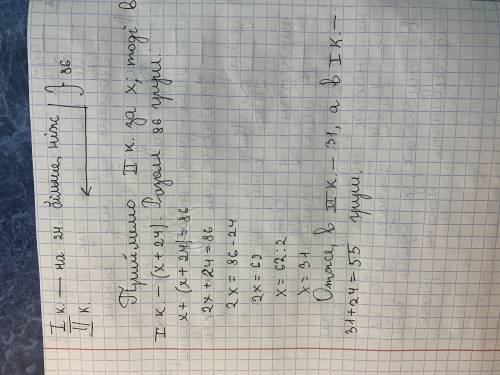 І к. — на 24 більше, ніж } 86
ІІ к.
Приймемо ІІ к. за х; тоді в
І к — (х + 24). Разом 86 груш.
х + (х + 24) = 86
2х + 24 = 86
2х = 86 - 24
2х = 62
х = 62 : 2
х = 31
Отже, в ІІ к. — 31, а в І к. —
31 + 24 = 55 груш.